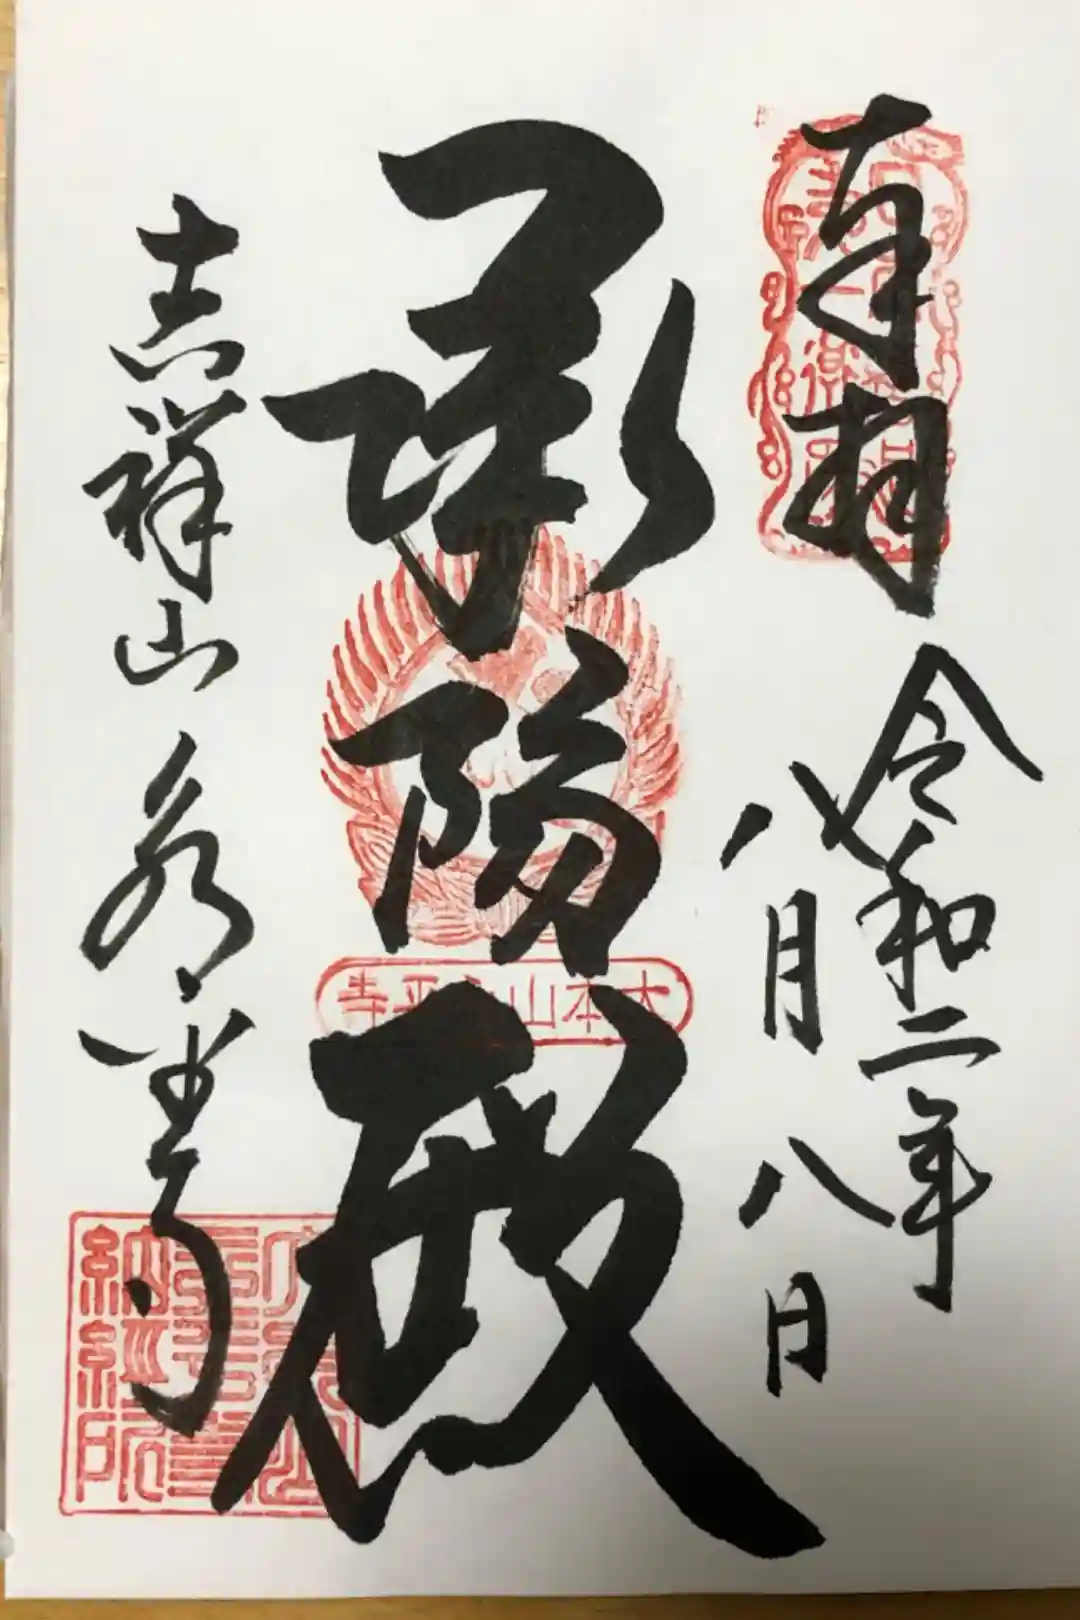 奉拝
令和二年
八月八日
承陽殿
大本山永平寺
吉祥山永平寺
納経所